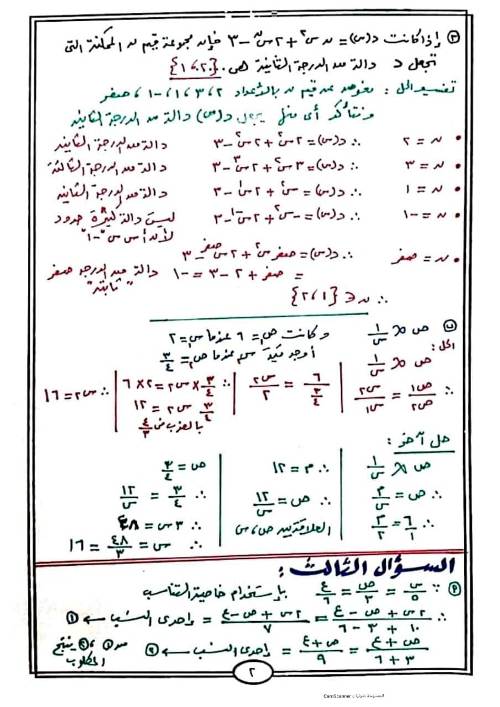 ③ إذا كانت د(س) = ن س² + ٢ س^ن - ٣ فإن مجموعة قيم ن الممكنة التى
تجعل د دالة من الدرجة الثانية هى. {٢،١}
تفسير الحل: نعوض عن قيم ن بالأعداد ٢، ٣، ١، -١، صفر
ونتأكد أى منها يجعل د(س) دالة من الدرجة الثانية
• ن = ٢ ∴ د(س) = ٢س² + ٢س² - ٣ دالة من الدرجة الثانية
• ن = ٣ ∴ د(س) = ٣س² + ٢س³ - ٣ دالة من الدرجة الثالثة
• ن = ١ ∴ د(س) = س² + ٢س¹ - ٣ دالة من الدرجة الثانية
• ن = -١ ∴ د(س) = -س² + ٢س⁻¹ - ٣ ليست دالة كثيرة حدود
لأن أس س "-١"
• ن = صفر ∴ د(س) = صفر س² + ٢س^صفر - ٣
= صفر + ٢ - ٣ = -١ دالة من الدرجة صفر
"ثابتة"
∴ ن ∈ {٢،١}
ص ∝ ١/س وكانت ص = ٦ عندما س = ٢
أوجد قيمة س عندما ص = ٣/٤
الحل:
ص ∝ ١/س
∴ ص١/ص٢ = س٢/س١
٦/(٣/٤) = س٢/٢
∴ ٣/٤ × س٢ = ٢ × ٦
٣/٤ س٢ = ١٢
بالضرب فى ٤/٣
∴ س٢ = ١٦
حل آخر:
ص ∝ ١/س
∴ ص = م/س
∴ ٦/١ = م/٢
∴ م = ١٢
∴ ص = ١٢/س
العلاقة بين ص، س
ص = ٣/٤
∴ ٣/٤ = ١٢/س
∴ ٣س = ٤٨
∴ س = ٤٨/٣ = ١٦
السؤال الثالث:
∵ س/٥ = ص/٣ = ع/٦ بإستخدام خاصية التناسب
∴ (٢س + ص - ع)/(١٠ + ٣ - ٦) = (٢س + ص - ع)/٧ = إحدى النسب ← ①
(ص + ع)/(٣ + ٦) = (ص + ع)/٩ = إحدى النسب ← ② من ①، ② ينتج
المطلوب
٢
CamScanner